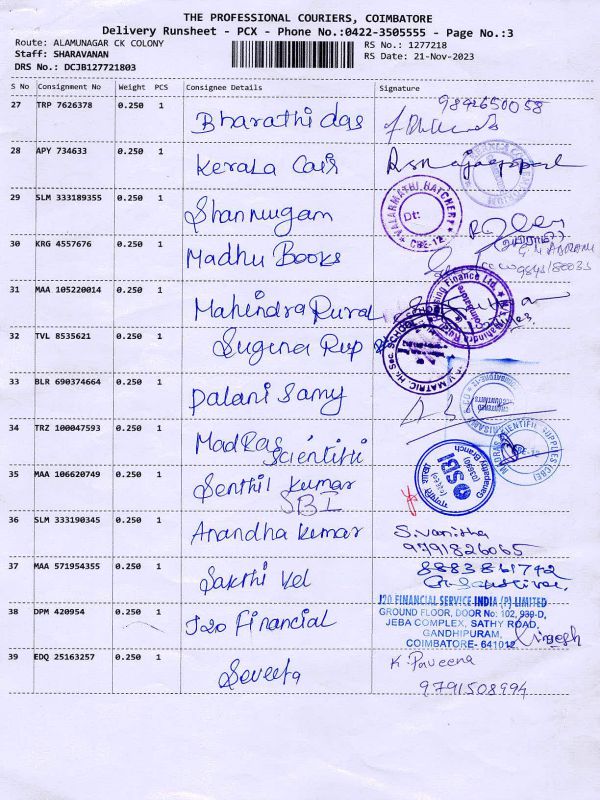 THE PROFESSIONAL COURIERS, COIMBATORE
Delivery Runsheet - PCX - Phone No.:0422-3505555 - Page No.:3
Route: ALAMUNAGAR CK COLONY RS No.: 1277218
Staff: SHARAVANAN RS Date: 21-Nov-2023
DRS No.: DCJB127721803
S No Consignment No Weight PCS Consignee Details Signature
27 TRP 7626378 0.250 1 Bharathi das 9842650058
28 APY 734633 0.250 1 Kerala Cars
29 SLM 333189355 0.250 1 Shanmugam
VALARMATHI HATCHERY
Dt:
CBE-12
30 KRG 4557676 0.250 1 Madhu Books
31 MAA 105220014 0.250 1 Mahindra Rural
32 TVL 8535621 0.250 1 Suguna Rup
33 BLR 690374664 0.250 1 Palani Samy
34 TRZ 100047593 0.250 1 Madras Scientifi
35 MAA 106620749 0.250 1 Senthil Kumar
SBI
SBI
Ganapathy Branch
36 SLM 333190345 0.250 1 Anandha Kumar S. Vanitha
9791826065
37 MAA 571954355 0.250 1 Sakthi Vel 8883861742
38 DPM 420954 0.250 1 J20 Financial
J20 FINANCIAL SERVICE INDIA (P) LIMITED
GROUND FLOOR, DOOR No: 102, 939-D,
JEBA COMPLEX, SATHY ROAD,
GANDHIPURAM,
COIMBATORE- 641012
39 EDQ 25163257 0.250 1 Seveeta K. Paveena
9791508994